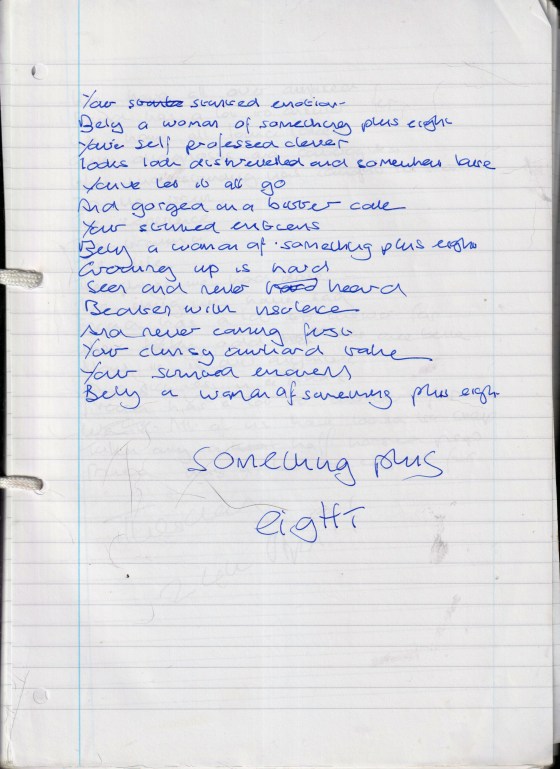 Your stunted emotions
Bely a woman of something plus eight
You've self professed clever
looks look dishevelled and somewhat
You've let it all go
And gorged on a bitter cake
Your stunted emotions
Bely a woman of something plus eight
Growing up is hard
Seen and never heard
Beaten with insolence
And never coming first
Your clumsy awkward
Your stunted emotions
Bely a woman of something plus eight
something plus
eight